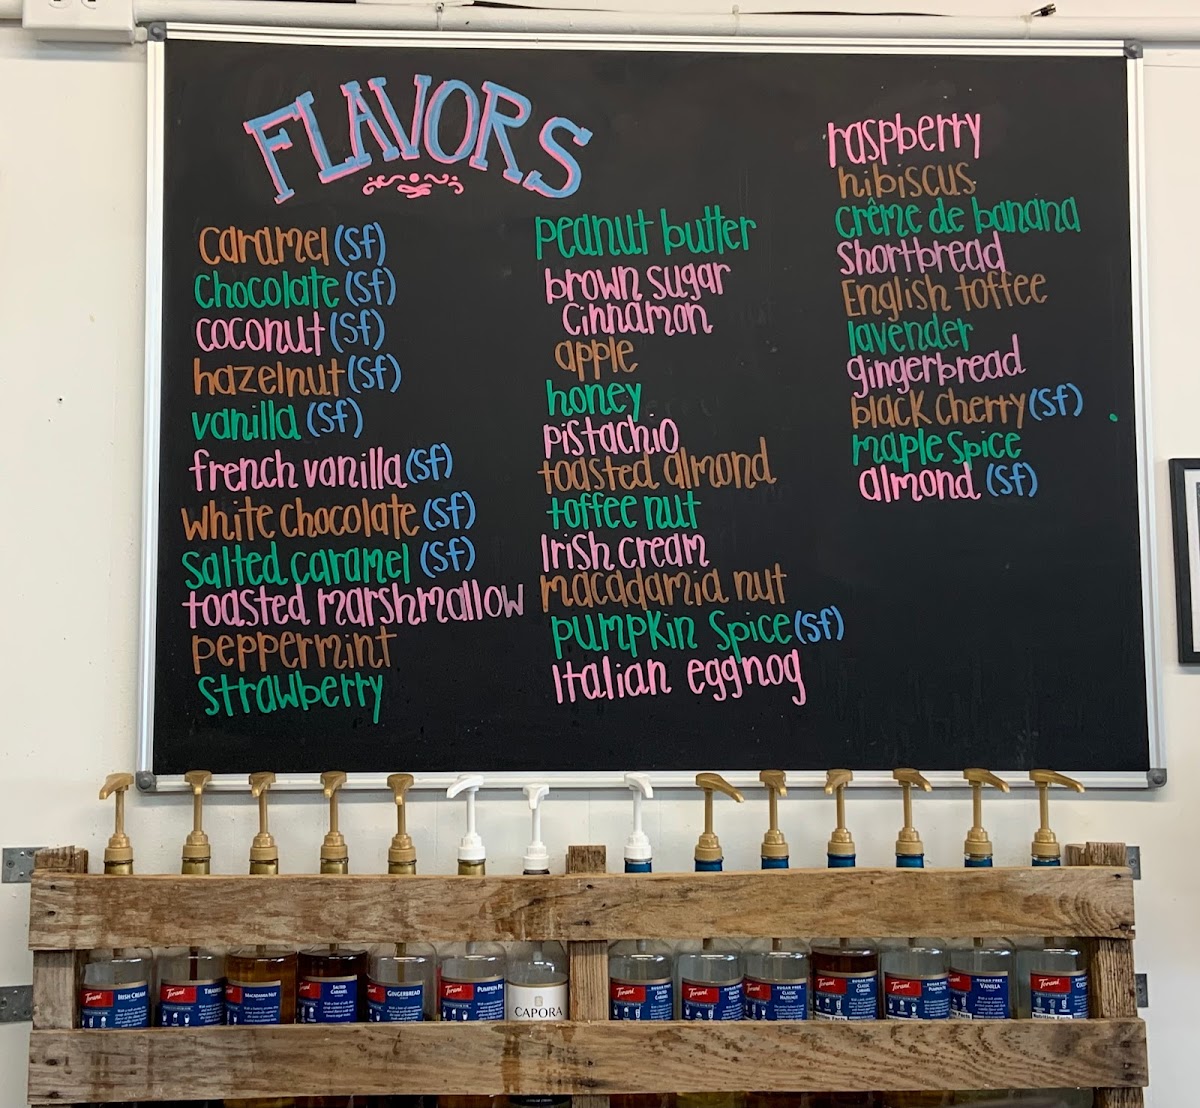 FLAVORS
caramel (sf)
chocolate (sf)
coconut (sf)
hazelnut (sf)
vanilla (sf)
french vanilla (sf)
white chocolate (sf)
salted caramel (sf)
toasted marshmallow
peppermint
strawberry
peanut butter
brown sugar
cinnamon
apple
honey
pistachio
toasted almond
toffee nut
Irish cream
macadamia nut
pumpkin spice (sf)
Italian eggnog
raspberry
hibiscus
crême de banana
shortbread
English toffee
lavender
gingerbread
black cherry (sf)
maple spice
almond (sf)
Torani
IRISH CREAM
Torani
Torani
MACADAMIA NUT
Torani
SALTED
CARAMEL
Torani
GINGERBREAD
Torani
PUMPKIN PIE
CAPORA
Torani
SUGAR FREE
SALTED
CARAMEL
Torani
SUGAR FREE
VANILLA
Torani
SUGAR FREE
CLASSIC
HAZELNUT
Torani
SUGAR FREE
CLASSIC
CARAMEL
Torani
SUGAR FREE
Torani
SUGAR FREE
VANILLA
Torani
SUGAR FREE